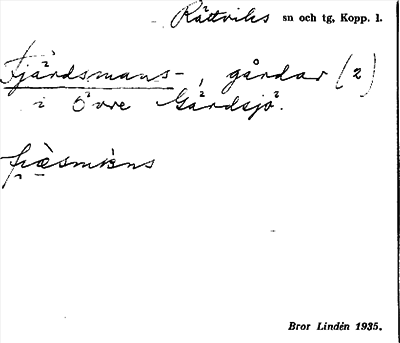 Rättviks sn och tg, Kopp. l.
Fjärdsmans-, gårdar (2)
i Övre Gärdsjö.
Bror Lindén 1935.